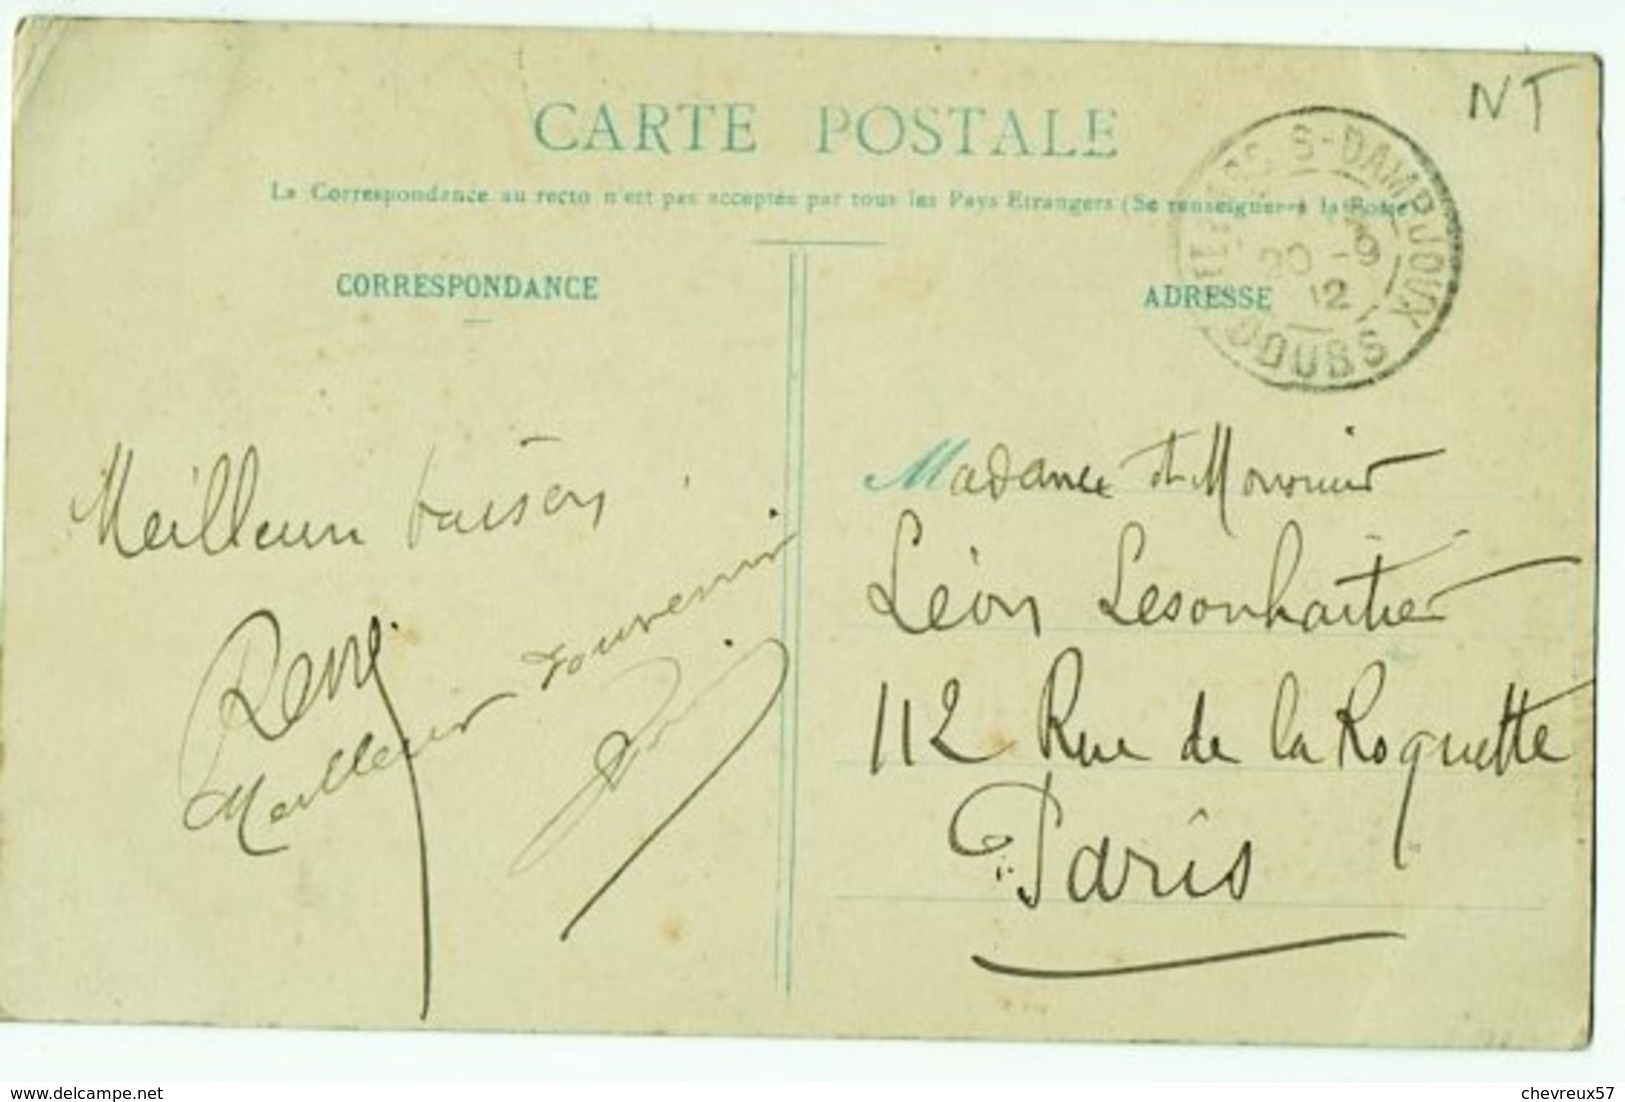 CARTE POSTALE
NT
La Correspondance au recto n'est pas acceptée par tous les Pays Etrangers (Se renseigner à la Poste)
S-DAMPJOUX
20 -9
12
DOUBS
CORRESPONDANCE
ADRESSE
Meilleurs baisers
René
Meilleur souvenir
Madame et Monsieur
Léon Lesouhaitier
112 Rue de la Roquette
Paris
delcampe.net
chevreux57